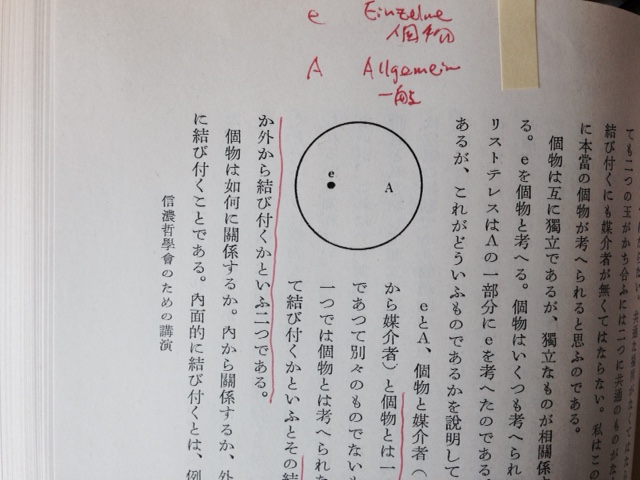 e Einzelne
個物
A Allgemein
一般
ても二つの玉がかち合ふには二つに共通のものがな
結び付くにも媒介者が無くてはならない。私はこの
に本當の個物が考へられると思ふのである。
個物は互に獨立であるが、獨立なものが相關係
る。eを個物と考へる。個物はいくつも考へられ
リストテレスはAの一部分にeを考へたのである
あるが、これがどういふものであるかを説明して
e
A
eとA、個物と媒介者(
から媒介者)と個物とは一
であつて別々のものでない
一つでは個物とは考へられ
て結び付くかといふとその結
か外から結び付くかといふ二つである。
個物は如何に關係するか。內から關係するか、外
に結び付くことである。內面的に結び付くとは、例
信濃哲學會のための講演